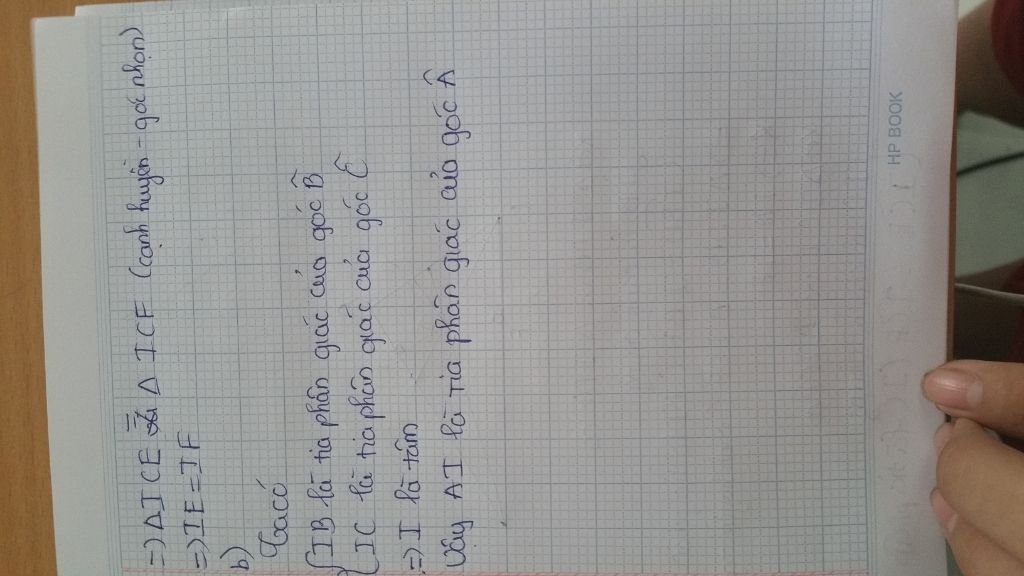 =) ΔICE = ΔICF (cạnh huyền - góc nhọn)
=) IE = IF
b)
Ta có
{IB là tia phân giác của góc B̂
IC là tia phân giác của góc Ĉ
=) I là tâm
Vậy AI là tia phân giác của góc Â
HP BOOK